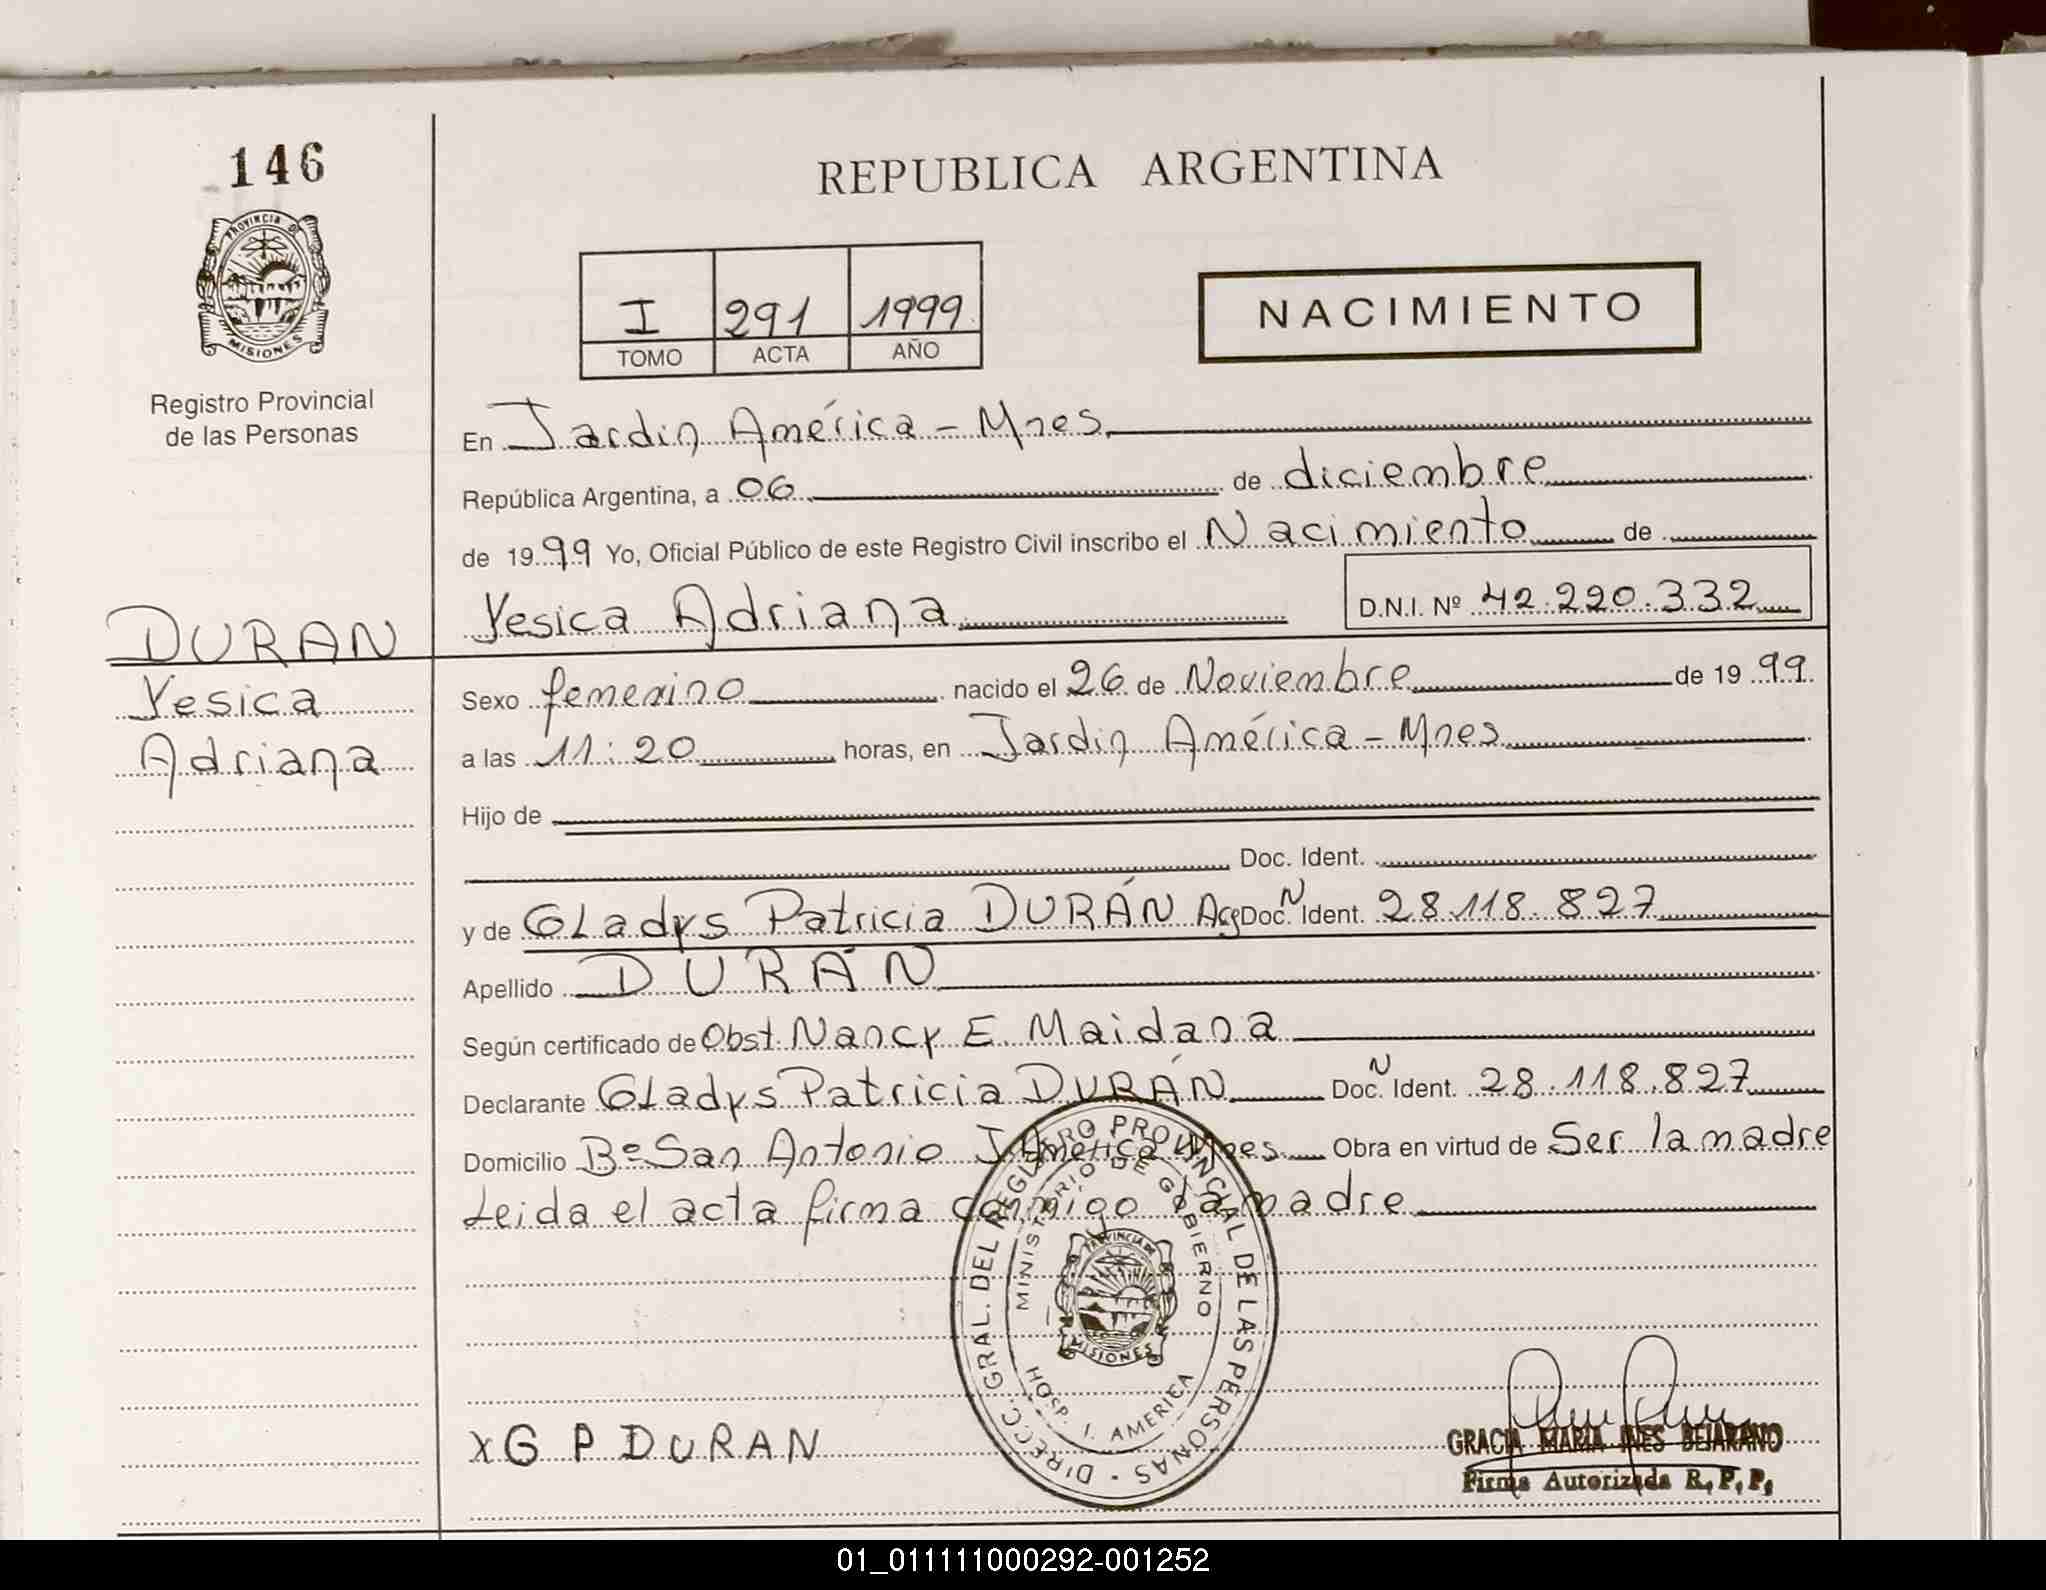 146
REPUBLICA ARGENTINA
PROVINCIA DE
MISIONES
Registro Provincial
de las Personas
I 291 1999
TOMO ACTA AÑO
NACIMIENTO
En Jardin América - Mnes.
República Argentina, a 06 de diciembre
de 1999 Yo, Oficial Público de este Registro Civil inscribo el Nacimiento de
Yesica Adriana D.N.I. Nº 42.220.332
DURAN
Yesica
Adriana
Sexo femenino nacido el 26 de Noviembre de 1999
a las 11:20 horas, en Jardin América - Mnes
Hijo de
Doc. Ident.
y de GLadys Patricia DURÁN Arg Doc. N Ident. 28.118.827
Apellido DURÁN
Según certificado de Obst. Nancy E. Maidana
Declarante GLadys Patricia DURÁN Doc. N Ident. 28.118.827
Domicilio Bº San Antonio J. América Mnes Obra en virtud de Ser la madre
Leida el acta firma conmigo la madre
DIRECC. GRAL. DEL REGISTRO PROVINCIAL DE LAS PERSONAS
MINISTERIO DE GOBIERNO
PROVINCIA DE
MISIONES
HOSP. I. AMERICA
X G P DURAN
GRACIA MARIA INES BEJARANO
Firma Autorizada R.P.P.
01_011111000292-001252